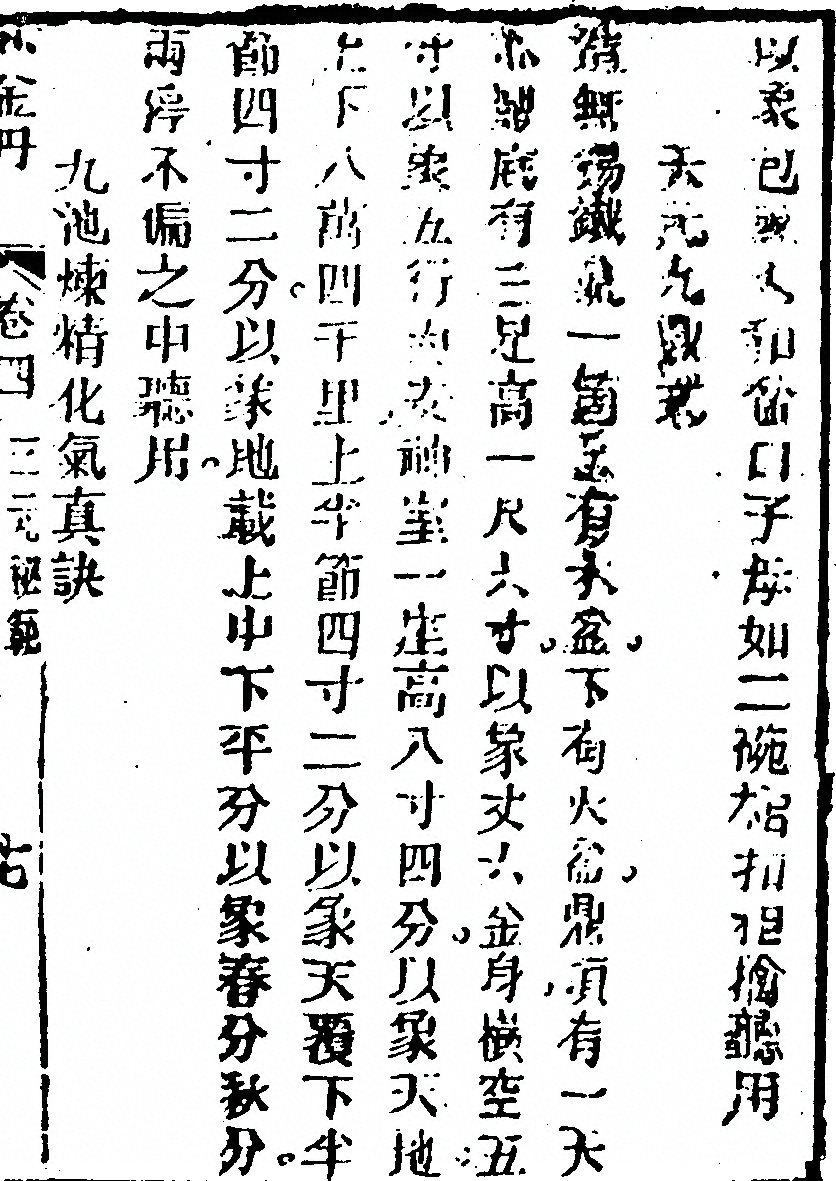 以象包□□□□口子母如二碗相扣□擒聽用
天元九鼎□
□無錫鐵鼎一箇上有水盆下有火盆鼎頂有一天
□□底有三足高一尺六寸以象丈六金身橫空五
寸以象五行内安神室一座高八寸四分以象天地
上下八萬四千里上半節四寸二分以象天覆下半
節四寸二分以象地載上中下平分以象春分秋分
兩停不偏之中聽用
九池煉精化氣真訣
金丹 卷四 三元秘範 七